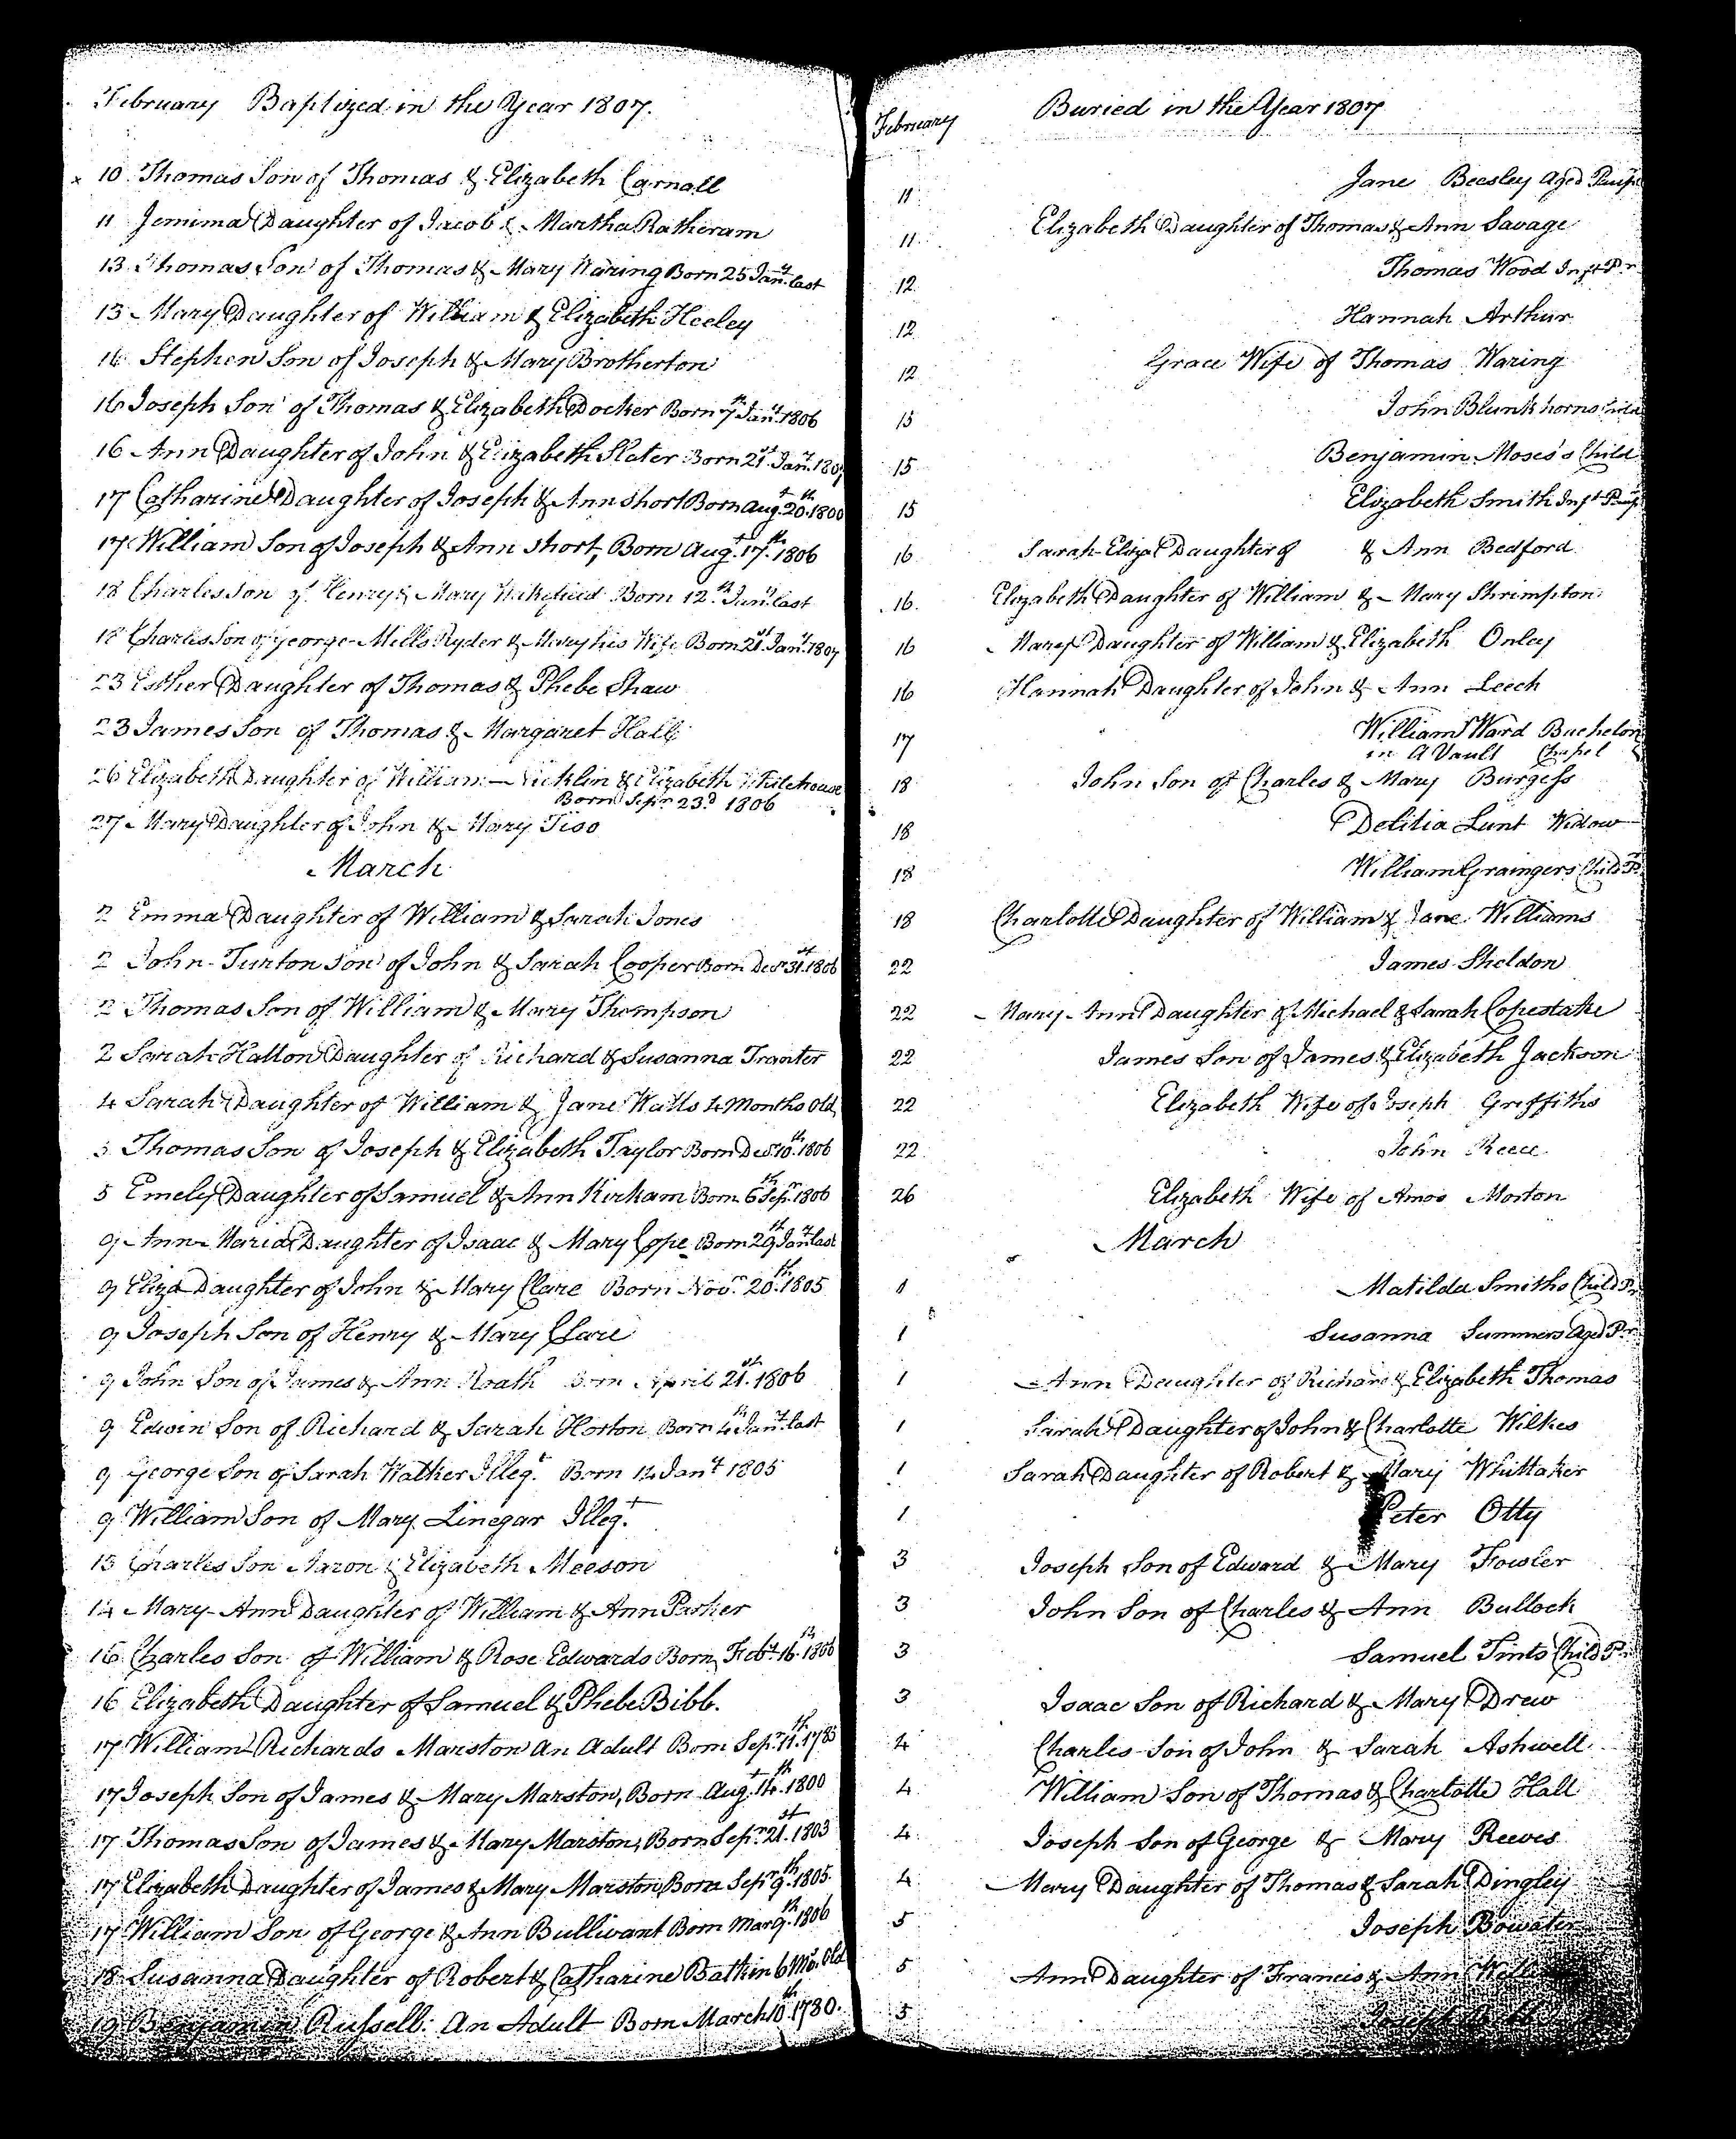 February Baptized in the Year 1807.
10 Thomas Son of Thomas & Elizabeth Carnall
11 Jemima Daughter of Jacob & Martha Ratheram
13 Thomas Son of Thomas & Mary Waring Born 25 Jany. last
13 Mary Daughter of William & Elizabeth Heeley
16 Stephen Son of Joseph & Mary Brotherton
16 Joseph Son of Thomas & Elizabeth Docker Born 7th Jany. 1806
16 Ann Daughter of John & Elizabeth Slater Born 21st Jany. 1807
17 Catharine Daughter of Joseph & Ann Short Born Augt. 20th 1800
17 William Son of Joseph & Ann Short, Born Augt. 17th 1806
18 Charles Son of Henry & Mary Wakefield Born 12th Jany. last
18 Charles Son of George-Mills Ryder & Mary his Wife Born 21st Jany. 1807
23 Esther Daughter of Thomas & Phebe Shaw
23 James Son of Thomas & Margaret Hall
26 Elizabeth Daughter of William Nicklin & Elizabeth Whitehouse
Born Sepr. 23d 1806
27 Mary Daughter of John & Mary Tiso
March
2 Emma Daughter of William & Sarah Jones
2 John-Turton Son of John & Sarah Cooper Born Decr 31st 1806
2 Thomas Son of William & Mary Thompson
2 Sarah-Hatton Daughter of Richard & Susanna Tranter
4 Sarah Daughter of William & Jane Watts 4 Months Old
5 Thomas Son of Joseph & Elizabeth Taylor Born Decr 10th 1806
5 Emely Daughter of Samuel & Ann Kirkam Born 6th Sepr. 1806
9 Ann-Maria Daughter of Isaac & Mary Cope Born 29th Jany. last
9 Eliza Daughter of John & Mary Clare Born Novr. 20th 1805
9 Joseph Son of Henry & Mary Clare
9 John Son of James & Ann Roath Born April 21st 1806
9 Edwin Son of Richard & Sarah Horton Born 4th Jany. last
9 George Son of Sarah Walker Illegt. Born 14 Jany 1805
9 William Son of Mary Linegar Illegt.
13 Charles Son Aaron & Elizabeth Meeson
14 Mary-Ann Daughter of William & Ann Parker
16 Charles Son of William & Rose Edwards Born Feby. 16th 1806
16 Elizabeth Daughter of Samuel & Phebe Bibb.
17 William Richards Marston An Adult Born Sepr. 11th 1785
17 Joseph Son of James & Mary Marston, Born Augt. 14th 1800
17 Thomas Son of James & Mary Marston, Born Sepr. 21st 1803
17 Elizabeth Daughter of James & Mary Marston, Born Sepr 9th 1805
17 William Son of George & Ann Bullivant Born Mar 9th 1806
18 Susanna Daughter of Robert & Catharine Batkin 6 Ms. Old
19 Benjamin Russell: An Adult Born March 10th 1780.
February Buried in the Year 1807
11 Jane Beesley Aged Paupr
11 Elizabeth Daughter of Thomas & Ann Savage
12 Thomas Wood Inft Pr.
12 Hannah Arthur
12 Grace Wife of Thomas Waring
15 John Blunkhorns Child
15 Benjamin Moses's Child
15 Elizabeth Smith Inft Paupr
16 Sarah-Eliza Daughter of & Ann Bedford
16 Elizabeth Daughter of William & Mary Shrimpton
16 Mary Daughter of William & Elizabeth Onley
16 Hannah Daughter of John & Ann Leech
17 William Ward Bachelor
in A Vault Chapel
18 John Son of Charles & Mary Burgess
18 Delitia Lunt Widow
18 William Graingers Child Pr
18 Charlotte Daughter of William & Jane Williams
22 James Sheldon
22 Mary-Ann Daughter of Michael & Sarah Copestake
22 James Son of James & Elizabeth Jackson
22 Elizabeth Wife of Joseph Griffiths
22 John Reece
26 Elizabeth Wife of Amos Morton
March
1 Matilda Smiths Child Pr
1 Susanna Summers Aged Pr
1 Ann Daughter of Richard & Elizabeth Thomas
1 Sarah Daughter of John & Charlotte Wilkes
1 Sarah Daughter of Robert & Mary Whittaker
1 Peter Otty
3 Joseph Son of Edward & Mary Fowler
3 John Son of Charles & Ann Bullock
3 Samuel Tints Child Pr
3 Isaac Son of Richard & Mary Drew
4 Charles Son of John & Sarah Ashwell
4 William Son of Thomas & Charlotte Hall
4 Joseph Son of George & Mary Reeves
4 Mary Daughter of Thomas & Sarah Dingley
5 Joseph Bowater
5 Ann Daughter of Francis & Ann
5 Joseph